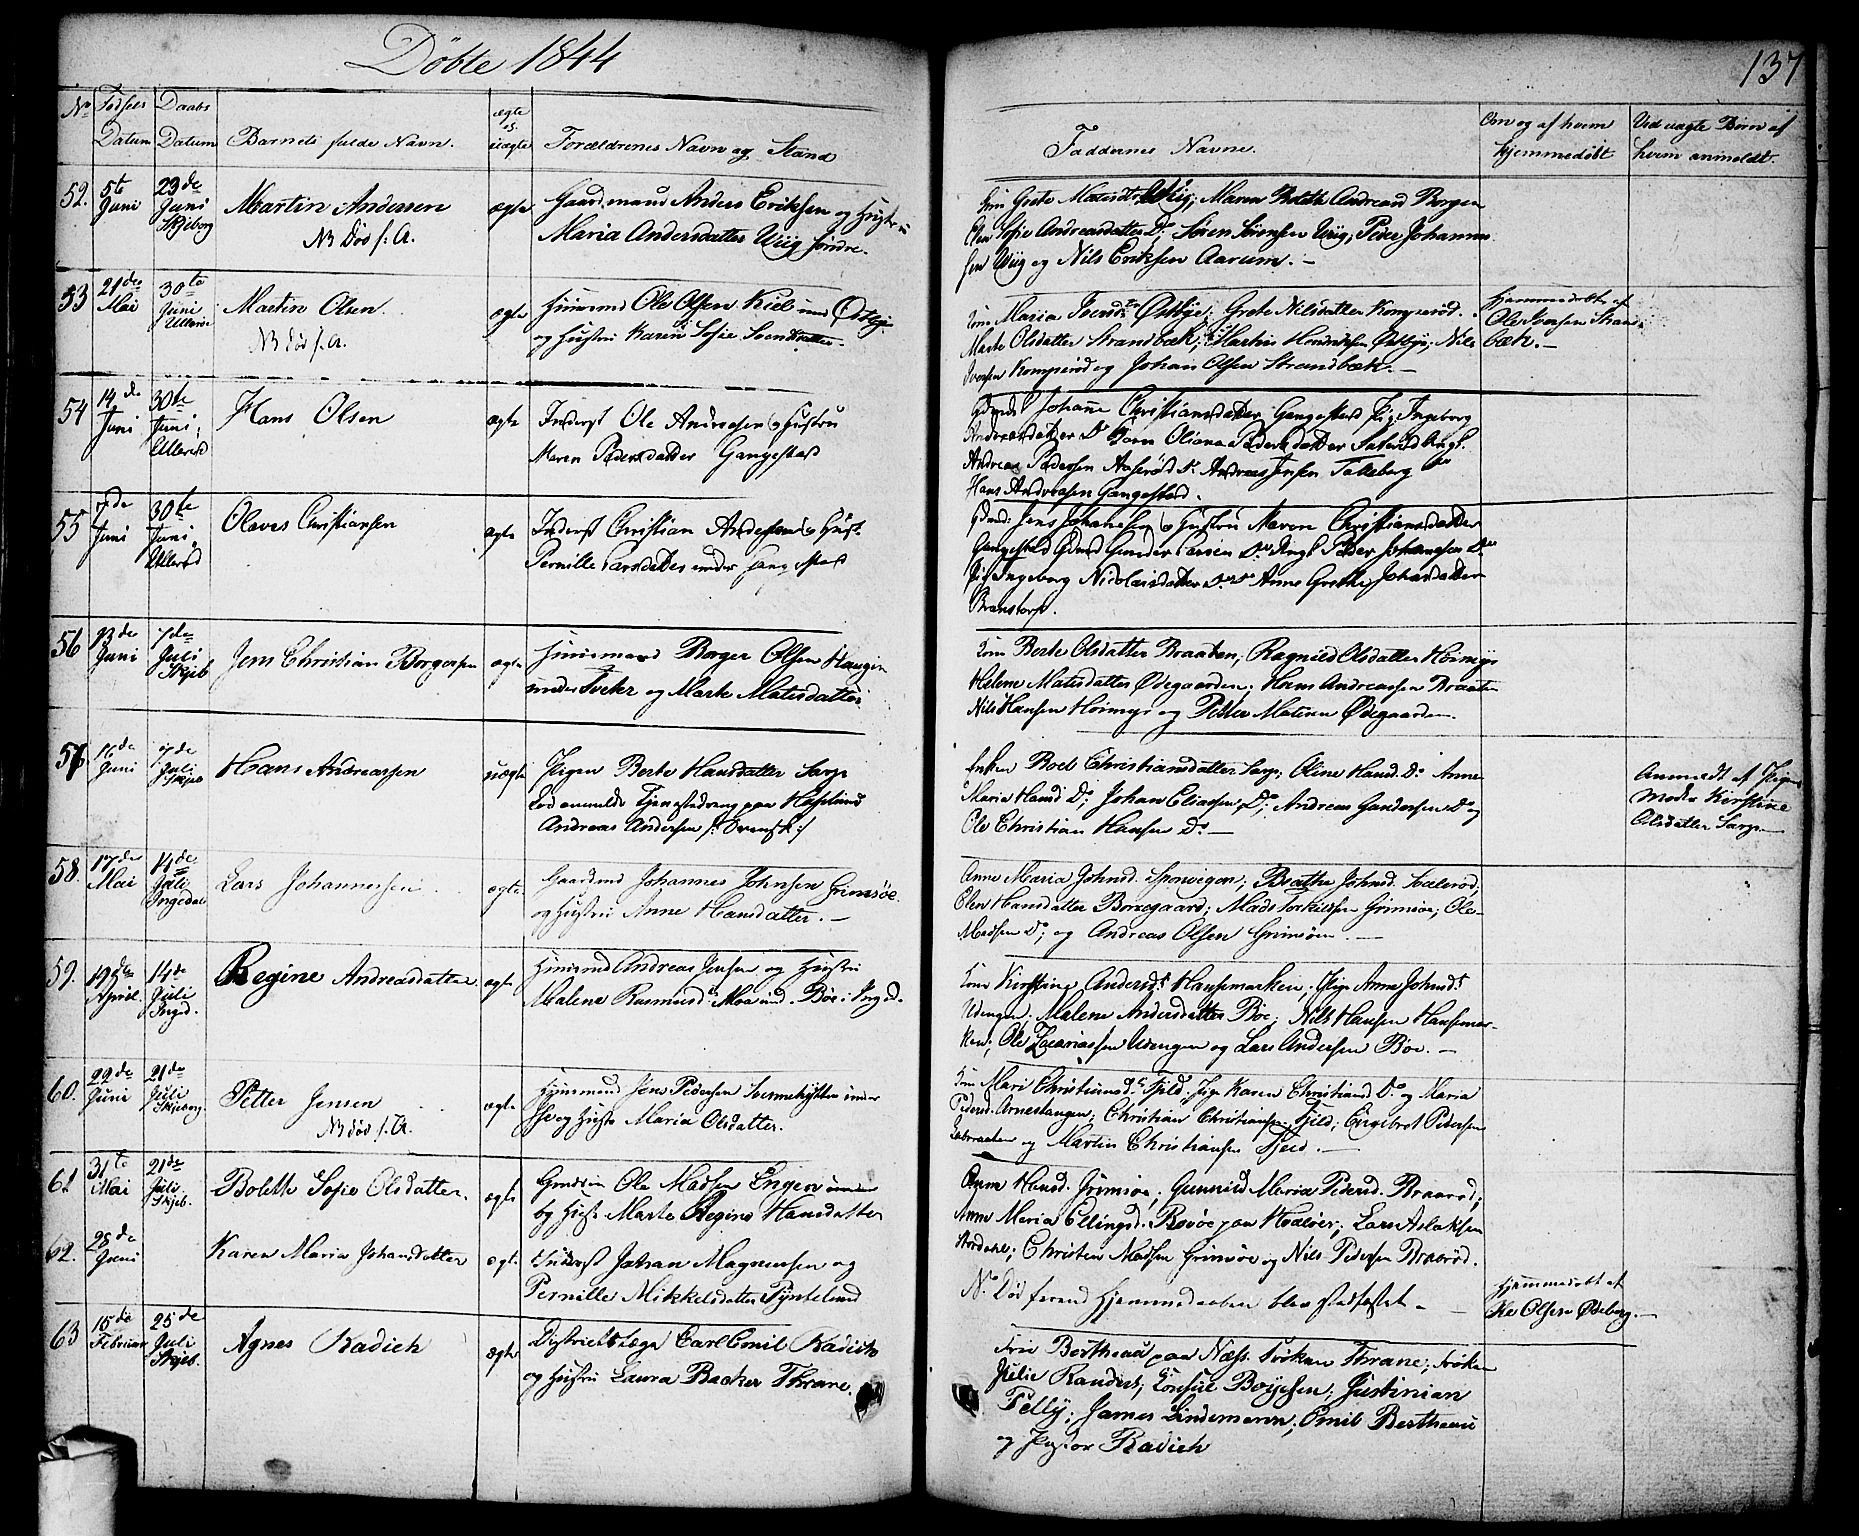 Döbte 1844
137
No Födsels Datum
Daabs Datum
Barnets fulde Navn.
ægte el. uægte
Forældrenes Navn og Stand
Faddernes Navne.
Om og af hvem hjemmedöbt
Ved uægte Börn af hvem anmeldt.
52. 5te Juni
23de Juni Skjeborg
Martin Andersen
NB Död s. A.
ægte
Gaardmand Anders Eriksen og Hustru
Maria Andersdatter Viig söndre.
Kone Grete Matisdtr Viig; Maren Bolette Andreasd Borgen
Elen Sofie Andreasdatter Do, Sören Sörensen Viig; Peder Johannes
sen Viig og Nils Eriksen Aarum. —
53 21de Mai
30te Juni Ullerøe
Martin Olsen.
NB död s. A.
ægte
Huusmnd Ole Olsen Kiil und Östbye
og Hustru Karen Sofie Svendsdatter.
Kone Maria Svends Dr Östbye; Grete Nilsdatter Komperöd.
Marte Olsdatter Strandbæk; Martin Hendriksen Östbye; Nils
Iversen Komperöd og Johan Olsen Strandbæk. —
Hjemmedöbt af
Ole Iversen Strand
bæk. —
54 14de Juni
30te Juni; Ulleröd
Hans Olsen
ægte
Inderst Ole Andreasen og Hustru
Maren Pedersdatter Gangestad
Gdmds K Johanne Christiansdatter Gangestad Pig; Ingeborg
Andreasdatter Do Oliana Pedersdatter
Andreas Pedersen Aaseröd Andreas Jensen Tolleborg
Hans Andreasen Gangestad.
55 7de Juni
30te Juni, Ulleröd
Olaves Christiansen
ægte
Inderst Christian Andersen og Hust.
Pernille Larsdatter under Gangestad
Gdmd: Jens Johannesen og Hustru Maren Christiansdatter
Gangestad Gdmd Gunder Larsen Do Ungk Peder Johannesen Do
Pig Ingeborg Nicolaisdatter Do Anne Grethe Johansdatter
Branstorp.
56 13de Juni
7de Juli Skjeb
Jens Christian Borgersen
ægte
Huusmand Borger Olsen Haugen
under Tveter og Marte Matisdatter
Kone Berte Olsdatter Braaten; Ragnild Olsdatter Hörmyr
Helene Matisdatter Ödegaarden; Hans Andreassen Braaten
Nils Hansen Hörmyr og Petter Matisen Ödegaarden.
57 16de Juni
7de Juli Skjeb
Hans Andreassen
uægte
Pigen Berte Hansdatter Sarp
Andreas Andersen /: Svensk :/
Enken Boel Christiansdatter Sarp; Oline Hansd. Do Anne
Maria Hansd Do; Johan Eliassen Do; Andreas Gundersen Do og
Ole Christian Hansen Do —
Anmeldt af Pigens
Moder Kirstine
Olsdatter Sarp —
58. 17de Mai
14de Juli Ingedal
Lars Johannessen
ægte.
Gaardmd Johannes Johnsen Grimsöe.
og Hustru Anne Hansdatter. —
Anne Maria Johnsd. Sponvigen; Brathe Johnsd. Soeleröd;
Elen Hansdatter Borregaard; Mads Torkildsen Grimsöe; Ole
Madsen Do; og Andreas Olsen Grimsöen —
59. 19de April.
14de Juli Inged.
Regine Andreasdatter.
ægte
Huusmd Andreas Jensen og Hustru
Malene Rasmusd. Moe und. Böe i Inged.
Kone Kirstine Andersd. Hansemarken; Pige Anne Johnsd.
Udengen; Malene Andersdatter Böe; Nils Hansen Hansemar-
ken; Ole Zacariassen Udengen og Lars Andersen Böe. —
60. 22de Juni
21de Juli Skjeborg.
Petter Jensen
NB död s. A.
ægte
Huusmand Jens Pedersen under
og Hust. Maria Olsdatter.
Kone Mari Christiansd. Fjeld. Pige Karen Christiansd Do og Maria
Pedersd. Arnestangen; Christian Christiansen Fjeld; Engebret Pedersen
og Martin Christiansen Fjeld. —
61 31te Mai
21de Juli. Skjeb.
Bolette Sofie Olsdatter.
ægte
Ole Madsen Engen
og Hust. Marte Regine Hansdatter
Anne Hansd. Grimsöe; Gunnild Maria Pedersd. Braaröd;
Anne Maria Ellingsd. paa Hvalöer; Lars Aslaksen
Christen Madsen Grimsöe og Nils Pedersen Braaröd.
62. 28de Juni
Karen Maria Johansdatter
ægte.
Inderst Johan Magnussen og
Pernille Mikkelsdatter Pyntelund
No Död forend Hjemmedaaben blev stadfæstet —
Hjemmedöbt af
Ole Olsen Ödeborg. —
63 15de Februar
25de Juli Skjeb.
Agnes Radich
ægte
Districtslæge Carl Emil Radich
og Hustru Laura Backer Thrane.
Frue Bertheau paa Næss. Fröken Thrane; Fröken
Julie Randers; Consul Boyesen; Justinian
Pelly; James Lindemann; Emil Bertheau
og Pastor Radich